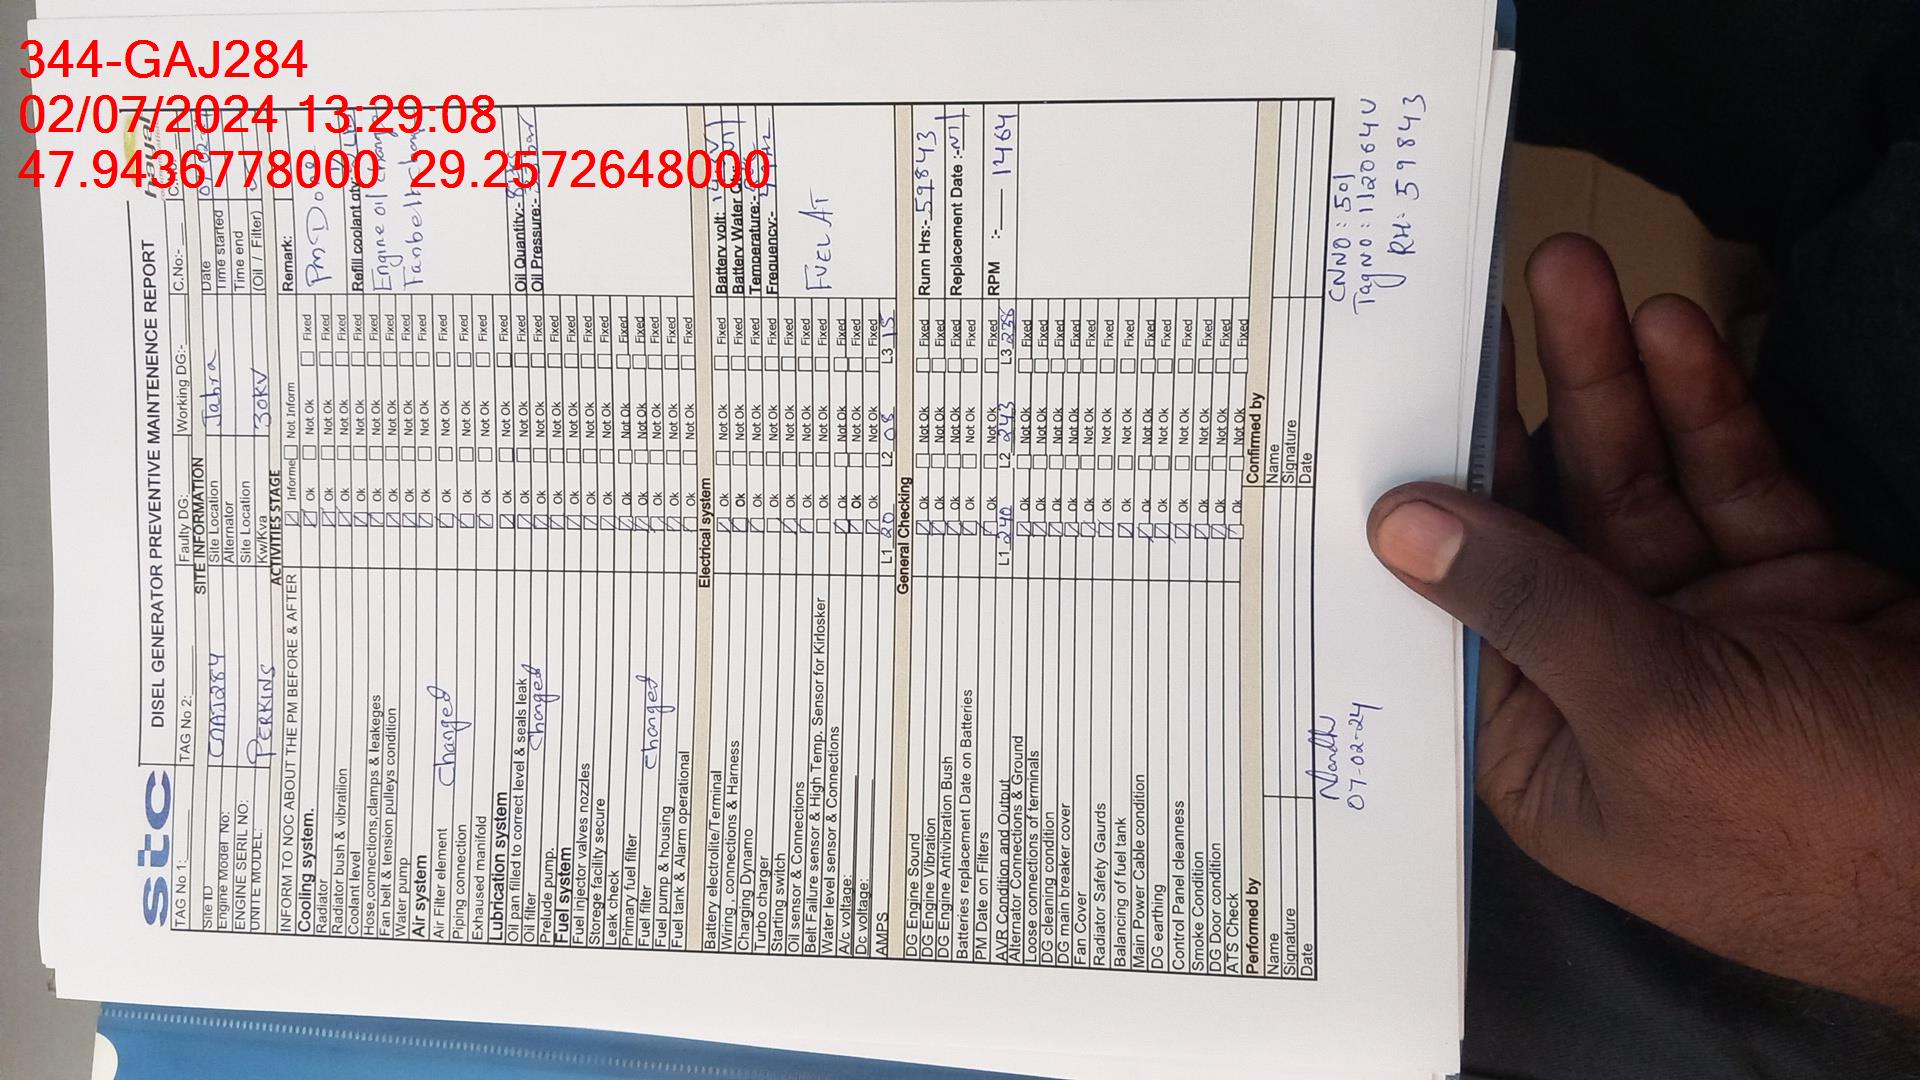 344-GAJ284
02/07/2024 13:29:08
47.9436778000 29.2572648000
stc
DISEL GENERATOR PREVENTIVE MAINTENENCE REPORT
TAG No 1: TAG No 2: Faulty DG: Working DG:- C.No:- C.No:-
SITE INFORMATION
Site ID GAJ284 Site Location Jahra Date
Engine Model No: Alternator Time started
ENGINE SERIL NO: Site Location Time end
UNITE MODEL: PERKINS Kw/Kva 30KV (Oil / Filter)
ACTIVITIES STAGE
INFORM TO NOC ABOUT THE PM BEFORE & AFTER Informe Not Inform Remark:
Cooling system. Ok Not Ok Fixed PM Done
Radiator Ok Not Ok Fixed
Radiator bush & vibration Ok Not Ok Fixed
Coolant level Ok Not Ok Fixed Refill coolant qty:
Hose,connections,clamps & leakeges Ok Not Ok Fixed Engine oil change
Fan belt & tension pulleys condition Ok Not Ok Fixed
Water pump Ok Not Ok Fixed Fanbelt change
Air system Ok Not Ok Fixed
Air Filter element Changed Ok Not Ok Fixed
Piping connection Ok Not Ok Fixed
Exhaused manifold Ok Not Ok Fixed
Lubrication system
Oil pan filled to correct level & seals leak Ok Not Ok Fixed Oil Quantity:-
Oil filter Changed Ok Not Ok Fixed Oil Pressure:-
Prelude pump. Ok Not Ok Fixed
Fuel system
Fuel injector valves nozzles Ok Not Ok Fixed
Storege facility secure Ok Not Ok Fixed
Leak check Ok Not Ok Fixed
Primary fuel filter Ok Not Ok Fixed
Fuel filter changed Ok Not Ok Fixed
Fuel pump & housing Ok Not Ok Fixed
Fuel tank & Alarm operational Ok Not Ok Fixed
Electrical system
Battery electrolite/Terminal Ok Not Ok Fixed Battery volt:
Wiring , connections & Harness Ok Not Ok Fixed Battery Water
Charging Dynamo Ok Not Ok Fixed Temperature:-
Turbo charger Ok Not Ok Fixed Frequency:-
Starting switch Ok Not Ok Fixed
Oil sensor & Connections Ok Not Ok Fixed FUEL AT
Belt Failure sensor & High Temp. Sensor for Kirlosker Ok Not Ok Fixed
Water level sensor & Connections Ok Not Ok Fixed
A/c voltage: Ok Not Ok Fixed
Dc voltage: Ok Not Ok Fixed
AMPS L1 20 L2 08 L3 15
General Checking
DG Engine Sound Ok Not Ok Fixed Runn Hrs:- 59843
DG Engine Vibration Ok Not Ok Fixed
DG Engine Antivibration Bush Ok Not Ok Fixed
Batteries replacement Date on Batteries Ok Not Ok Fixed Replacement Date :- Nil
PM Date on Filters Ok Not Ok Fixed
AVR Condition and Output L1 240 L2 243 L3 236 RPM :- 1464
Alternator Connections & Ground Ok Not Ok Fixed
Loose connections of terminals Ok Not Ok Fixed
DG cleaning condition Ok Not Ok Fixed
DG main breaker cover Ok Not Ok Fixed
Fan Cover Ok Not Ok Fixed
Radiator Safety Gaurds Ok Not Ok Fixed
Balancing of fuel tank Ok Not Ok Fixed
Main Power Cable condition Ok Not Ok Fixed
DG earthing Ok Not Ok Fixed
Control Panel cleanness Ok Not Ok Fixed
Smoke Condition Ok Not Ok Fixed
DG Door condition Ok Not Ok Fixed
ATS Check Ok Not Ok Fixed
Performed by Confirmed by
Name Name
Signature Signature
Date Date
Nandhu
07-02-24
CNNO: 501
Tag NO: 112064U
RH: 59843